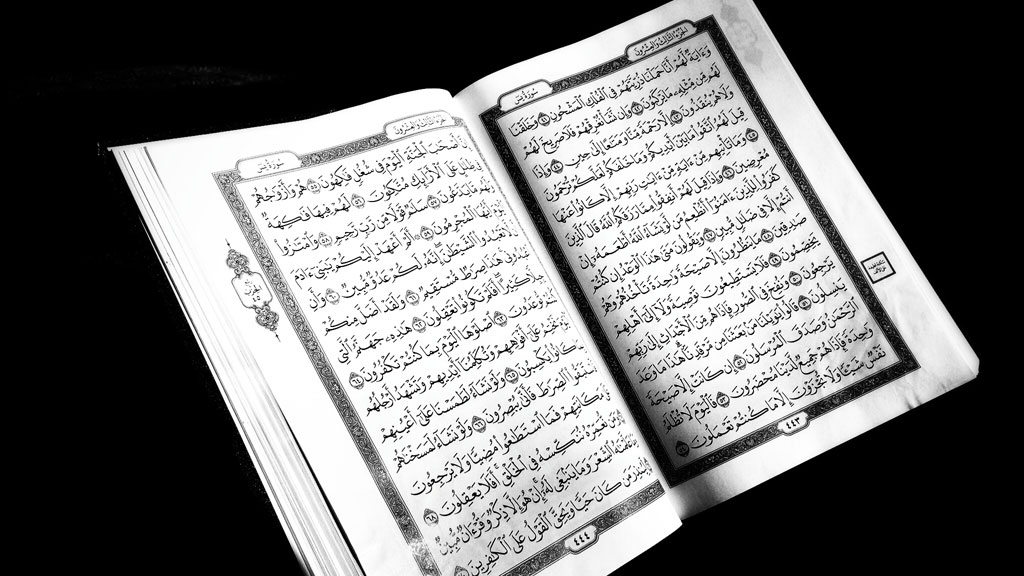 الجزء الثالث والعشرون
سورة يس
وَءَايَةٌ لَّهُمْ أَنَّا حَمَلْنَا ذُرِّيَّتَهُمْ فِي ٱلْفُلْكِ ٱلْمَشْحُونِ ٤١ وَخَلَقْنَا
لَهُم مِّن مِّثْلِهِۦ مَا يَرْكَبُونَ ٤٢ وَإِن نَّشَأْ نُغْرِقْهُمْ فَلَا صَرِيخَ لَهُمْ
وَلَا هُمْ يُنقَذُونَ ٤٣ إِلَّا رَحْمَةً مِّنَّا وَمَتَٰعًا إِلَىٰ حِينٍ ٤٤ وَإِذَا
قِيلَ لَهُمُ ٱتَّقُوا۟ مَا بَيْنَ أَيْدِيكُمْ وَمَا خَلْفَكُمْ لَعَلَّكُمْ تُرْحَمُونَ
٤٥ وَمَا تَأْتِيهِم مِّنْ ءَايَةٍ مِّنْ ءَايَٰتِ رَبِّهِمْ إِلَّا كَانُوا۟ عَنْهَا
مُعْرِضِينَ ٤٦ وَإِذَا قِيلَ لَهُمْ أَنفِقُوا۟ مِمَّا رَزَقَكُمُ ٱللَّهُ قَالَ ٱلَّذِينَ
كَفَرُوا۟ لِلَّذِينَ ءَامَنُوٓا۟ أَنُطْعِمُ مَن لَّوْ يَشَآءُ ٱللَّهُ أَطْعَمَهُۥٓ إِنْ
أَنتُمْ إِلَّا فِي ضَلَٰلٍ مُّبِينٍ ٤٧ وَيَقُولُونَ مَتَىٰ هَٰذَا ٱلْوَعْدُ إِن كُنتُمْ
صَٰدِقِينَ ٤٨ مَا يَنظُرُونَ إِلَّا صَيْحَةً وَٰحِدَةً تَأْخُذُهُمْ وَهُمْ
يَخِصِّمُونَ ٤٩ فَلَا يَسْتَطِيعُونَ تَوْصِيَةً وَلَآ إِلَىٰٓ أَهْلِهِمْ
يَرْجِعُونَ ٥٠ وَنُفِخَ فِي ٱلصُّورِ فَإِذَا هُم مِّنَ ٱلْأَجْدَاثِ إِلَىٰ رَبِّهِمْ
يَنسِلُونَ ٥١ قَالُوا۟ يَٰوَيْلَنَا مَنۢ بَعَثَنَا مِن مَّرْقَدِنَا هَٰذَا مَا وَعَدَ
ٱلرَّحْمَٰنُ وَصَدَقَ ٱلْمُرْسَلُونَ ٥٢ إِن كَانَتْ إِلَّا صَيْحَةً
وَٰحِدَةً فَإِذَا هُمْ جَمِيعٌ لَّدَيْنَا مُحْضَرُونَ ٥٣ فَٱلْيَوْمَ لَا تُظْلَمُ
نَفْسٌ شَيْـًٔا وَلَا تُجْزَوْنَ إِلَّا مَا كُنتُمْ تَعْمَلُونَ ٥٤
٤٤٣
الجزء الثالث والعشرون
سورة يس
إِنَّ أَصْحَٰبَ ٱلْجَنَّةِ ٱلْيَوْمَ فِي شُغُلٍ فَٰكِهُونَ ٥٥ هُمْ وَأَزْوَٰجُهُمْ
فِي ظِلَٰلٍ عَلَى ٱلْأَرَآئِكِ مُتَّكِـُٔونَ ٥٦ لَهُمْ فِيهَا فَٰكِهَةٌ
وَلَهُم مَّا يَدَّعُونَ ٥٧ سَلَٰمٌ قَوْلًا مِّن رَّبٍّ رَّحِيمٍ ٥٨ وَٱمْتَٰزُوا۟
ٱلْيَوْمَ أَيُّهَا ٱلْمُجْرِمُونَ ٥٩ أَلَمْ أَعْهَدْ إِلَيْكُمْ يَٰبَنِيٓ ءَادَمَ
أَن لَّا تَعْبُدُوا۟ ٱلشَّيْطَٰنَ إِنَّهُۥ لَكُمْ عَدُوٌّ مُّبِينٌ ٦٠ وَأَنِ
ٱعْبُدُونِي هَٰذَا صِرَٰطٌ مُّسْتَقِيمٌ ٦١ وَلَقَدْ أَضَلَّ مِنكُمْ
جِبِلًّا كَثِيرًا أَفَلَمْ تَكُونُوا۟ تَعْقِلُونَ ٦٢ هَٰذِهِۦ جَهَنَّمُ ٱلَّتِي
كُنتُمْ تُوعَدُونَ ٦٣ ٱصْلَوْهَا ٱلْيَوْمَ بِمَا كُنتُمْ تَكْفُرُونَ ٦٤
ٱلْيَوْمَ نَخْتِمُ عَلَىٰٓ أَفْوَٰهِهِمْ وَتُكَلِّمُنَآ أَيْدِيهِمْ وَتَشْهَدُ أَرْجُلُهُم
بِمَا كَانُوا۟ يَكْسِبُونَ ٦٥ وَلَوْ نَشَآءُ لَطَمَسْنَا عَلَىٰٓ أَعْيُنِهِمْ
فَٱسْتَبَقُوا۟ ٱلصِّرَٰطَ فَأَنَّىٰ يُبْصِرُونَ ٦٦ وَلَوْ نَشَآءُ لَمَسَخْنَٰهُمْ
عَلَىٰ مَكَانَتِهِمْ فَمَا ٱسْتَطَٰعُوا۟ مُضِيًّا وَلَا يَرْجِعُونَ
٦٧ وَمَن نُّعَمِّرْهُ نُنَكِّسْهُ فِي ٱلْخَلْقِ أَفَلَا يَعْقِلُونَ ٦٨
وَمَا عَلَّمْنَٰهُ ٱلشِّعْرَ وَمَا يَنۢبَغِي لَهُۥٓ إِنْ هُوَ إِلَّا ذِكْرٌ وَقُرْءَانٌ مُّبِينٌ
٦٩ لِّيُنذِرَ مَن كَانَ حَيًّا وَيَحِقَّ ٱلْقَوْلُ عَلَى ٱلْكَٰفِرِينَ ٧٠
٤٤٤